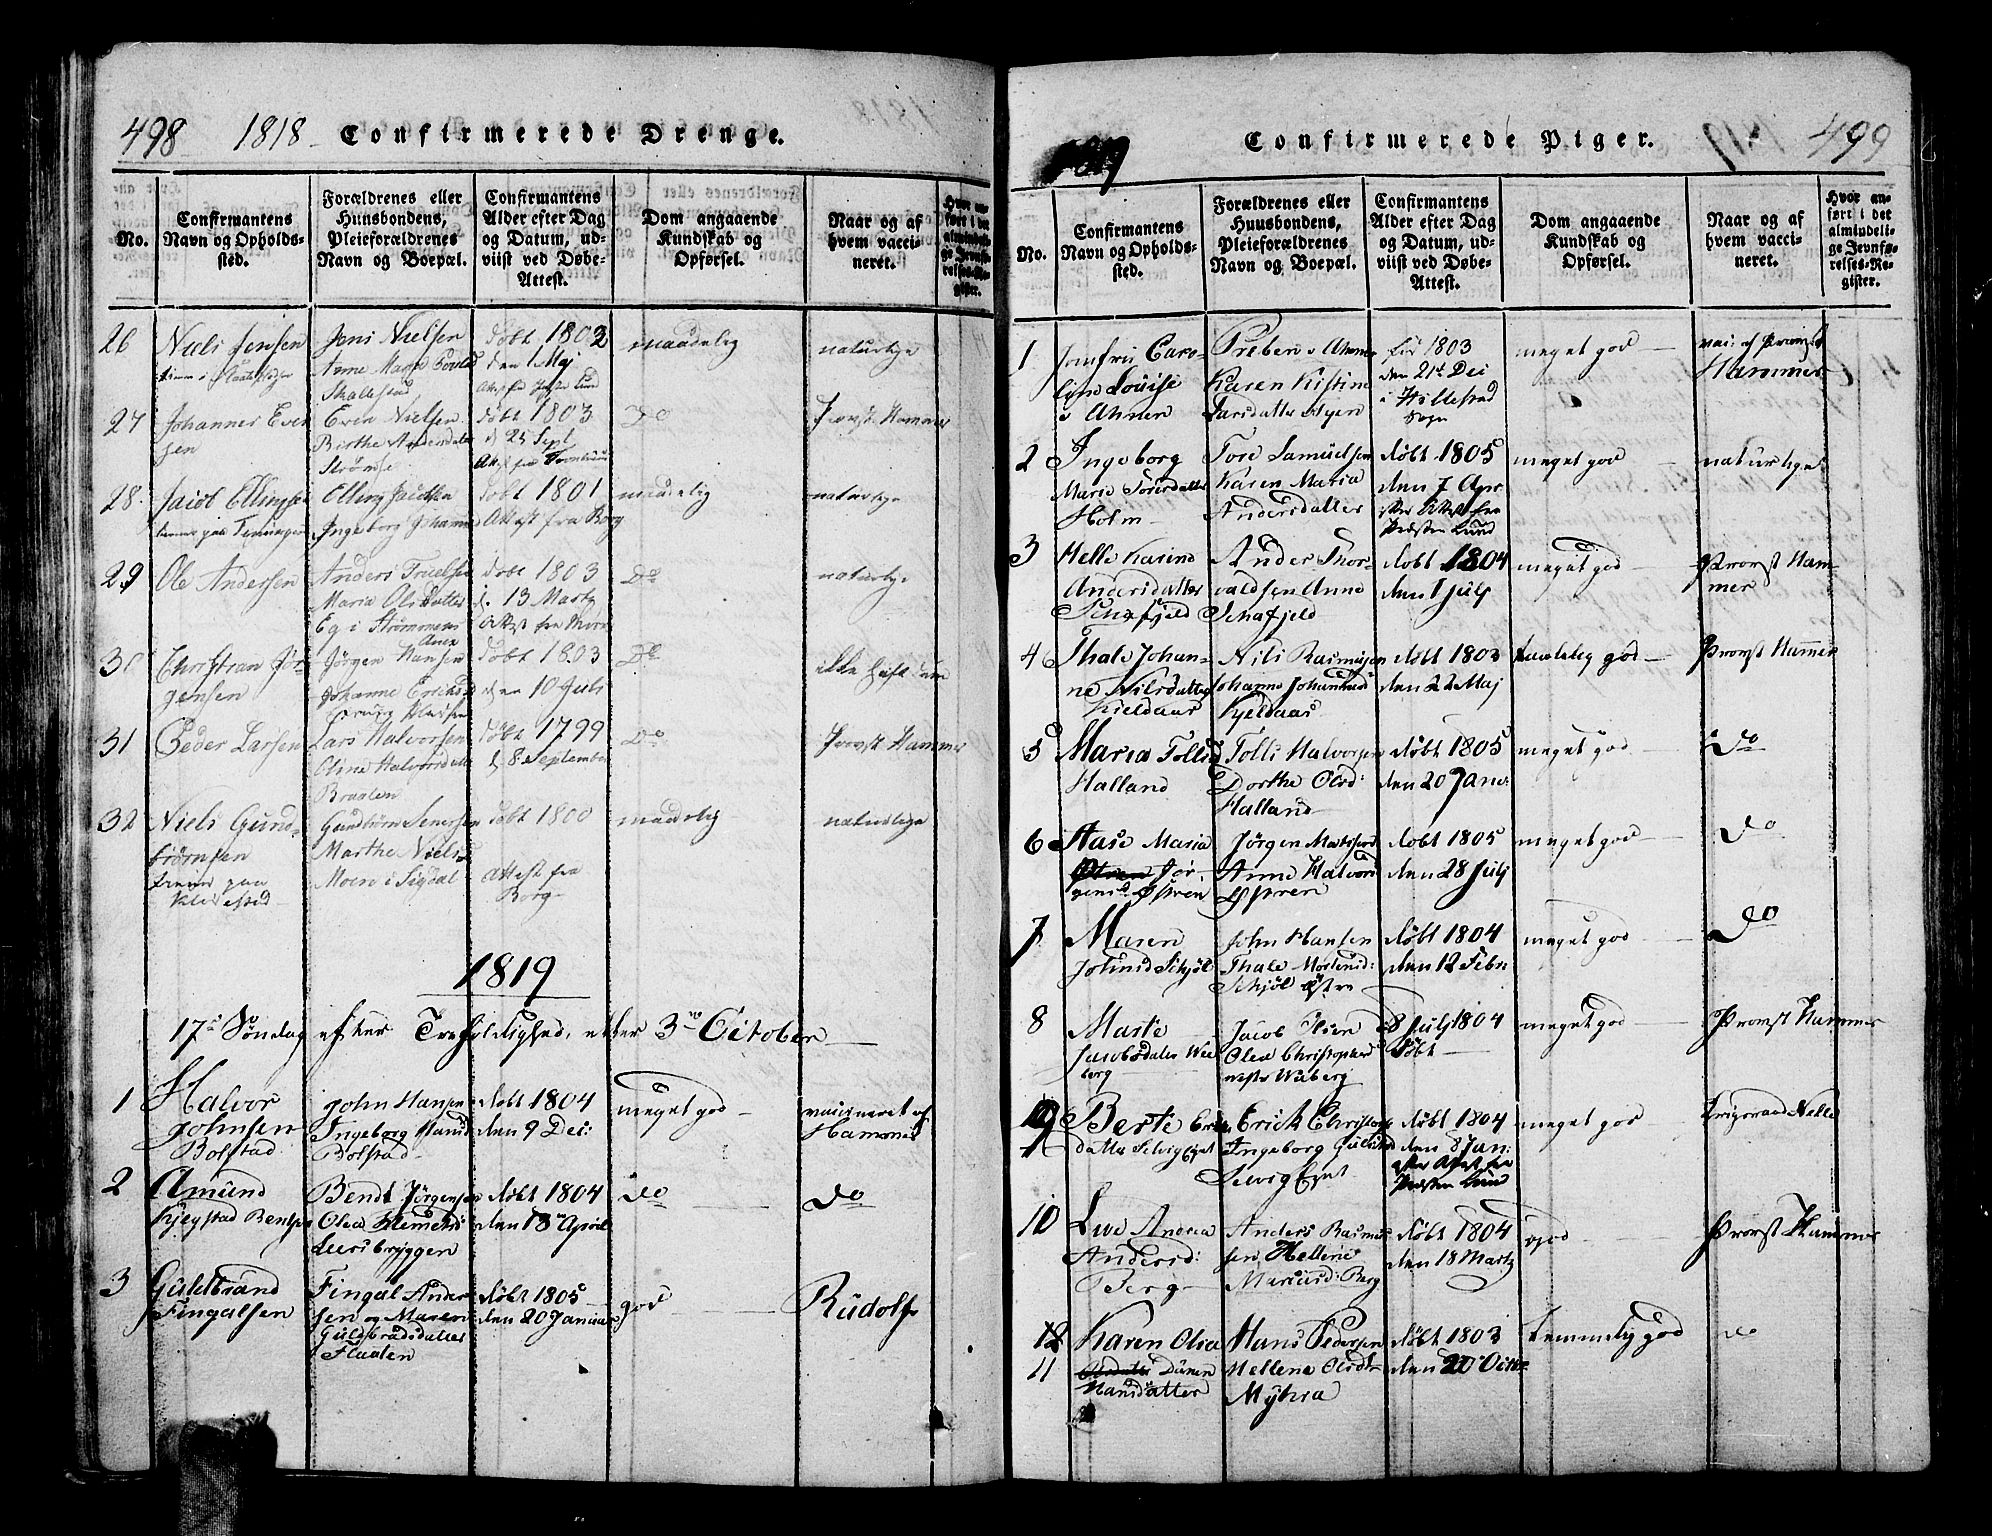 498 1818 Confirmerede Drenge.
No.
Confirmantens
Navn og Opholds-
sted.
Forældrenes eller
Huusbondens,
Pleieforældrenes
Navn og Boepæl.
Confirmantens
Alder efter Dag
og Datum, ud-
viist ved Døbe-
Attest.
Dom angaaende
Kundskab og
Opførsel.
Naar og af
hvem vacci-
neret.
Hvor an-
ført i det
almindeli-
ge Jevnfø-
relses-Re-
gister.
26 Niels Jensen
Jens Nielsen
Skallestad
døbt 1802
den 1 Maj
maadelig
naturlige
27 Johannes Even
sen
Even Nielsen
Birthe Andersdatter
Strømse
døbt 1803
d 25 Sept
Do
Provst Hammer
28. Jacob Ellingsen
Elling Jacobsen
Ingeborg Johannesd
døbt 1801
Attest fra Borg
maadelig
naturlige
29 Ole Andersen
Anders Truelsen
Maria Olsdatter
Eg i Strømmens
Anex
døbt 1803
d. 13 Martz
Do
naturlige
30 Christian Jør-
gensen
Jørgen Hansen
Johanne Eriksd
døbt 1803
den 10 Juli
Do
31 Peder Larsen
Lars Halvorsen
Oline Halvorsdatter
Braaten
døbt 1799
d 8 September
Do
Provst Hammer
32 Niels Gund-
biørnsen
Gundbiørn
Marthe Nielsd
Moen i Sigdal
døbt 1800
Attest fra
Borg
maadelig
naturlige
1819
17de Søndag efter Trefoldighed, etter 3die October
1 Halvor
Johnsen
Bolstad
John Hansen
Ingeborg Hansd
Bolstad
døbt 1804
den 9 Dec:
meget god
vaccineret af
Hammer
2 Amund
Bentsen
Bendt Jørgensen
Olea Klemetsd
Leersbryggen
døbt 1804
den 18 April
do
do
3 Guldbrand
Fingalsen
Fingal Ander
sen og Maren
Guldbradsdatter
Flaaten
døbt 1805
den 20 Januar
god
Rudolf
1819 Confirmerede Piger. 499
No.
Confirmantens
Navn og Opholds-
sted.
Forældrenes eller
Huusbondens,
Pleieforældrenes
Navn og Boepæl.
Confirmantens
Alder efter Dag
og Datum, ud-
viist ved Døbe-
Attest.
Dom angaaende
Kundskab og
Opførsel.
Naar og af
hvem vacci-
neret.
Hvor an-
ført i det
almindeli-
ge Jevnfø-
relses-Re-
gister.
1 Jomfru Caro-
line Louise
v Ahnen
Preben v Ahnen
Karen Kistine
Larsdatter
fød 1803
den 21de Dec
i Hillestad
Sogn
meget god
vac: af Provst
Hammer
2 Ingeborg
Marie Toresdatter
Holm
Tore Samuelsen
Karen Maria
Andersdatter
døbt 1805
den 7 Apr
efter Attest fra
Præsten Lund
meget god
naturlige
3 Helle Karine
Andersdatter
Schafjeld
Ander Thor-
valdsen Anne
Schafjeld
døbt 1804
den 1 July
meget god
Provst Ham-
mer
4 Thale Johan-
ne Nilsdatter
Kieldaas
Nils Rasmusen
Johanne Johannesd
Kjeldaas
døbt 1803
den 22 Maj
taalelig god
Provst Hammer
5 Maria Tollsd
Halland
Tolli Halvorsen
Dorthe Olsd:
Halland
døbt 1805
den 20 Janu:
meget god
do
6 Aase Maria
Jør-
gensd Østren
Jørgen
Anne Halvorsd
Østren
døbt 1805
den 28 July
meget god
do
7 Maren
Johnsd Schjøl
John Hansen
Thale Mortensd:
Schjøl østre
døbt 1804
den 12 Febr
meget god
do
8 Marte
Jacobsdatter Wee
berg
Jacob
Olea Christophers
Weeberg
8 July 1804
døbt
meget god
Provst Hammer
9 Berte Erics
datter Selvig Ejet
Erick Christop
Ingeborg
Selvig Ejet
døbt 1804
den 8 Jan:
efter Attest fra
Præsten Lund
meget god
10 Live Andrea
Andersd:
Berg
Anders Rasmus
sen Hellene
Mariusd: Berg
døbt 1804
den 18 Martz
god
Provst Hammer
12
11
Karen Olea
Hansdatter
Hans Pedersen
Hellene Olsdtr
Myhra
døbt 1803
den 20 Octbr
temmelig god
do